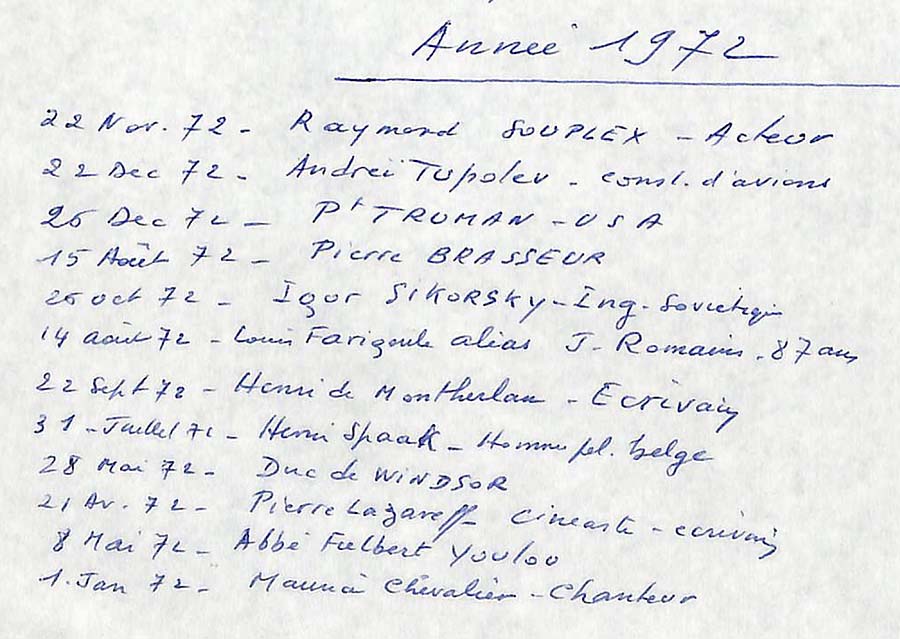 Année 1972
22 Nov. 72 - Raymond SOUPLEX - Acteur
22 Dec 72 - Andreï Tupolev - const. d'avions
26 Dec 72 - Pt TRUMAN - USA
15 Août 72 - Pierre BRASSEUR
26 oct 72 - Igor SIKORSKY - Ing. Soviétique
14 août 72 - Louis Farigoule alias J. Romains. 87 ans
22 Sept 72 - Henri de Montherlan - Ecrivain
31 - Juillet 72 - Henri Spaak - Homme pol. belge
28 Mai 72 - Duc de WINDSOR
21 Av. 72 - Pierre Lazareff - cinéaste - ecrivain
8 Mai 72 - Abbé Fulbert Youlou
1. Jan 72 - Maurice Chevalier - Chanteur